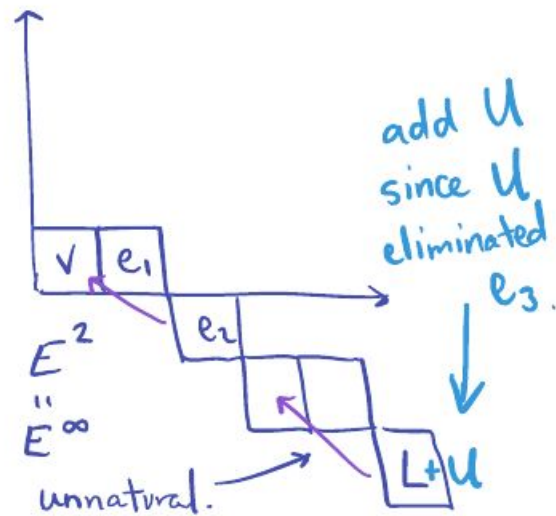 add U
since U
eliminated
e₃.
v e₁
e₂
E²
"
E^∞
L+U
unnatural.